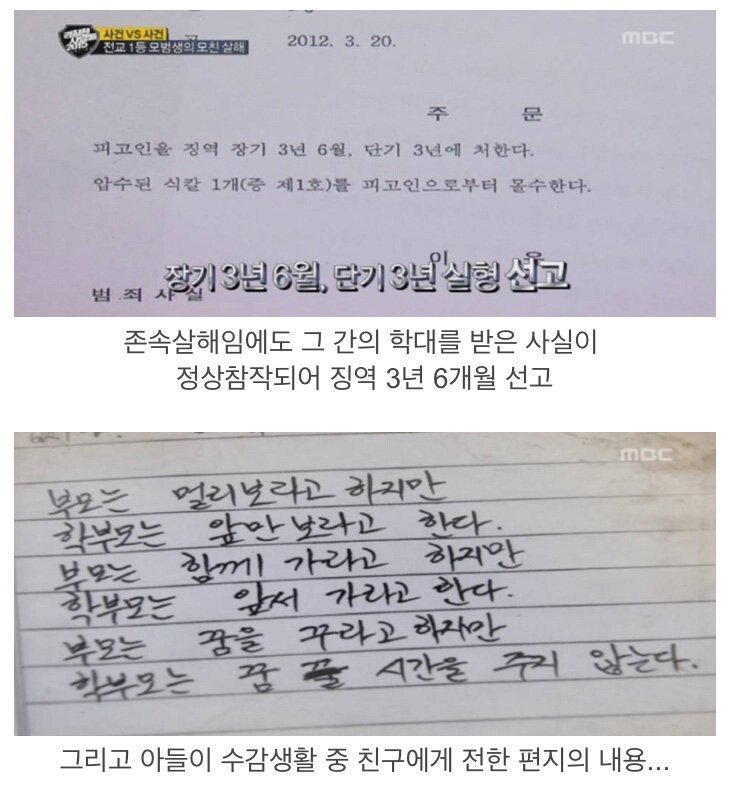 리얼스토리 2015
사건 VS 사건
전교 1등 모범생의 모친 살해
2012. 3. 20.
MBC
주 문
피고인을 징역 장기 3년 6월, 단기 3년에 처한다.
압수된 식칼 1개(증 제1호)를 피고인으로부터 몰수한다.
이 유
장기 3년 6월, 단기 3년 실형 선고
범 죄 사 실
존속살해임에도 그 간의 학대를 받은 사실이
정상참작되어 징역 3년 6개월 선고
MBC
부모는 멀리보라고 하지만
학부모는 앞만 보라고 한다.
부모는 함께 가라고 하지만
학부모는 앞서 가라고 한다.
부모는 꿈을 꾸라고 하지만
학부모는 꿈 꿀 시간을 주지 않는다.
그리고 아들이 수감생활 중 친구에게 전한 편지의 내용...